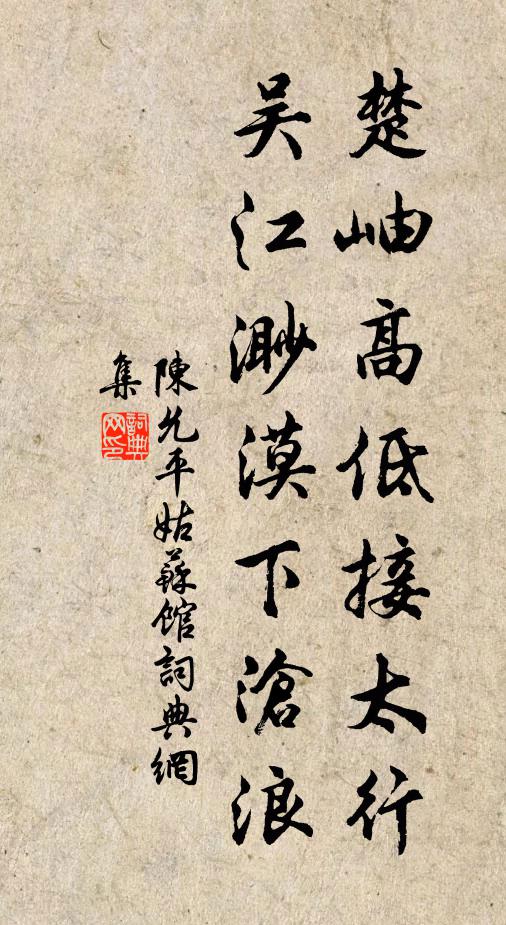 楚岫高低接太行
吴江渺漠下滄浪
陳允平姑蘇館詞典網
集
詞典
网印